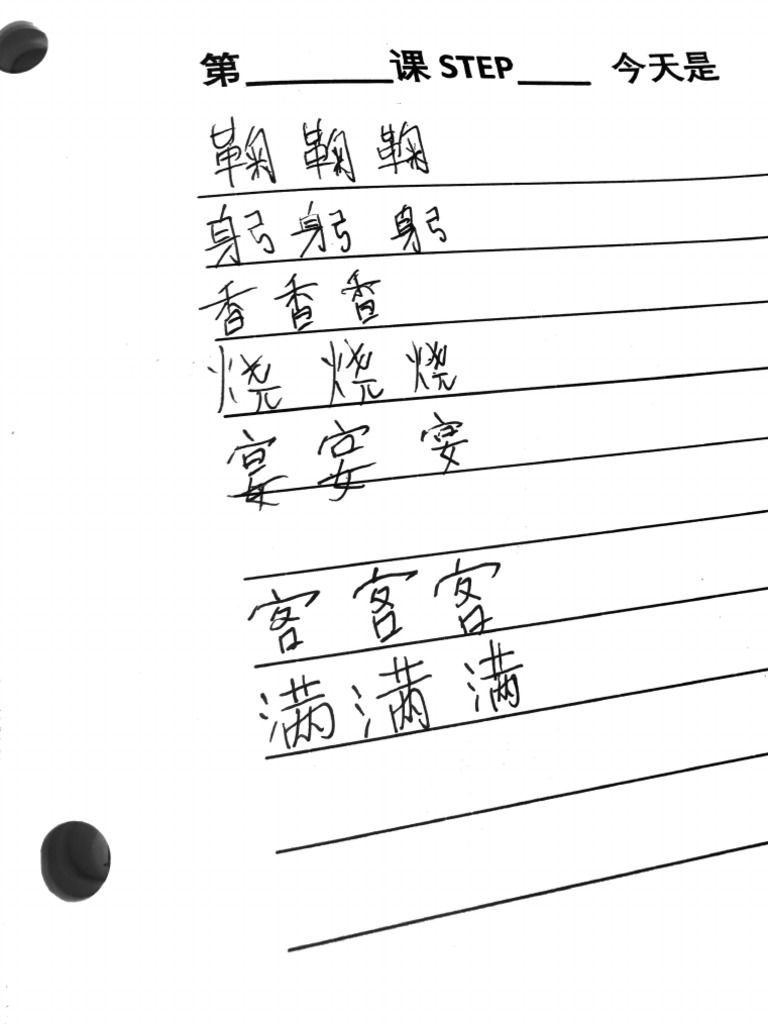 第________课 STEP_____ 今天是
鞠 鞠 鞠
躬 躬 躬
香 香 香
烧 烧 烧
宴 宴 宴
客 客 客
满 满 满